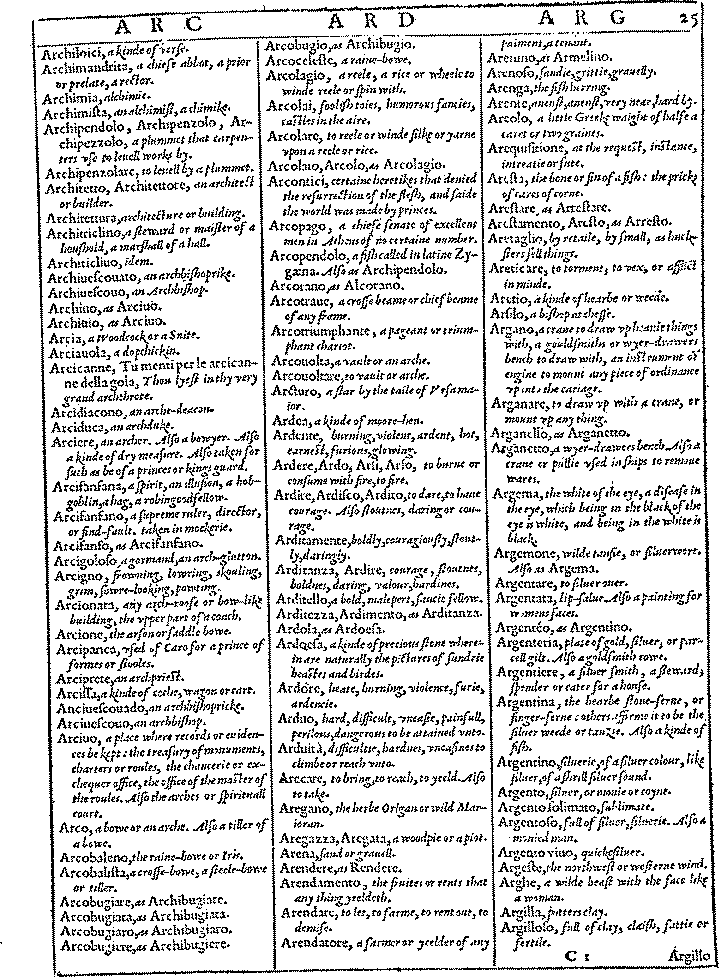 A R C A R D A R G 25
Archiloici, a kinde of verse.
Archimandrita, a chiefe abbot, a prior
or prelate, a rector.
Archimia, alchimie.
Archimista, an alchimist, a chimike.
Archipendolo, Archipenzolo, Ar-
chipezzolo, a plummet that carpen-
ters vse to leuell works by.
Archipenzolare, to leuell by a plummet.
Architetto, Architettore, an architect
or builder.
Architettura, architecture or building.
Architriclino, a steward or maister of a
houshold, a marshall of a hall.
Architicliuo, idem.
Archiuescouato, an archbishoprike.
Archiuescouo, an Archbishop.
Archiuo, as Arciuo.
Archiuio, as Arciuo.
Arcia, a Woodcock or a Snite.
Arciauola, a dopchickin.
Arcicanne, Tu menti per le arcican-
ne della gola, Thou lyest in thy very
grand archthrote.
Arcidiacono, an arche-deacon.
Arciduca, an archduke.
Arciere, an archer. Also a bowyer. Also
a kinde of dry measure. Also taken for
such as be of a princes or kings guard.
Arcifanfana, a spirit, an illusion, a hob-
goblin, a hag, a robingoodfellow.
Arcifanfano, a supreme ruler, director,
or find-fault. taken in mockerie.
Arcifanfo, as Arcifanfano.
Arcigoloso, a gormand, an arch-glutton.
Arcigno, frowning, lowring, skouling,
grim, sowre-looking, powting.
Arcionata, any arch-roofe or bow-like
building, the vpper part of a coach.
Arcione, the arson or saddle bowe.
Arcipanca, vsed of Caro for a prince of
formes or stooles.
Arciprete, an archpriest.
Arcilla, a kinde of coche, wagon or cart.
Anciuescouado, an archbishopricke.
Arciuescouo, an archbishop.
Arciuo, a place where records or euiden-
ces be kept: the treasury of monuments,
charters or roules, the chancerie or ex-
chequer office, the office of the master of
the roules. Also the arches or spirituall
court.
Arco, a bowe or an arche. Also a tiller of
a bowe.
Arcobaleno, the raine-bowe or Iris.
Arcobalista, a crosse-bowe, a steele-bowe
or tiller.
Arcobugiare, as Archibugiare.
Arcobugiata, as Archibugiata.
Arcobugiaro, as Archibugiaro.
Arcobugiere, as Archibugiere.
Arcobugio, as Archibugio.
Arcoceleste, a raine-bowe.
Arcolagio, a reele, a rice or wheele to
winde reele or spin with.
Arcolai, foolish toies, humorous fancies,
castles in the aire.
Arcolare, to reele or winde silke or yarne
vpon a reele or rice.
Arcolaio, Arcolo, as Arcolagio.
Arcontici, certaine heretikes that denied
the resurrection of the flesh, and saide
the world was made by princes.
Arcopago, a chiefe senate of excellent
men in Athens of no certaine number.
Arcopendolo, a fish called in latine Zy-
gæna. Also as Archipendolo.
Arcorano, as Alcorano.
Arcotraue, a crosse beame or chief beame
of any frame.
Arcotriumphante, a pageant or trium-
phant chariot.
Arcouolta, a vault or an arche.
Arcouoltare, to vault or arche.
Arcturo, a star by the taile of Vrsa ma-
ior.
Ardea, a kinde of moore-hen.
Ardente, burning, violent, ardent, hot,
earnest, furious, glowing.
Ardere, Ardo, Arsi, Arso, to burne or
consume with fire, to fire.
Ardire, Ardisco, Ardito, to dare, to haue
courage. Also stoutnes, daring or cou-
rage.
Arditamente, boldly, couragiously, stout-
ly, daringly.
Arditanza, Ardire, courage, stoutnes,
boldnes, daring, valour, hardines.
Arditello, a bold, malepert, saucie fellow.
Arditezza, Ardimento, as Arditanza.
Ardola, as Ardoesa.
Ardoesa, a kinde of precious stone where-
in are naturally the pictures of sundrie
beastes and birdes.
Ardore, heate, burning, violence, furie,
ardencie.
Arduo, hard, difficult, vneasie, painfull,
perilous, dangerous to be attained vnto.
Arduità, difficultie, hardnes, vneasines to
climbe or reach vnto.
Arecare, to bring, to reach, to yeeld. Also
to take.
Aregano, the herbe Origan or wild Mar-
ioran.
Aregazza, Aregata, a woodpie or a piot.
Arena, sand or grauell.
Arendere, as Rendere.
Arendamento, the fruites or rents that
any thing yeeldeth.
Arendare, to let, to farme, to rent out, to
demise.
Arendatore, a farmer or yeelder of any
paiment, a tenant.
Areiuno, as Armelino.
Arenoso, sandie, grittie, grauelly.
Arenga, the fish herring.
Arente, anenst, anenst, very near, hard by.
Arcolo, a little Greeke waight of halfe a
caret or two graines.
Arequisitione, at the request, instance,
intreatie or sute.
Aresta, the bone or fin of a fish: the pricke
of eares of corne.
Arestare, as Arrestare.
Arestamento, Aresto, as Arresto.
Aretaglio, by retaile, by small, as huck-
sters sell things.
Areticare, to torment, to vex, or afflict
in minde.
Aretio, a kinde of hearbe or weede.
Arfilo, a bishop at chesse.
Argano, a crane to draw vp heauie things
with, a gouldsmiths or wyer-drawers
bench to draw with, an instrument or
engine to mount any piece of ordinance
vp into the cariage.
Arganare, to draw vp with a crane, or
mount vp any thing.
Arganello, as Arganetto.
Arganetto, a wyer-drawers bench. Also a
crane or pullie vsed in ships to remoue
wares.
Argema, the white of the eye, a disease in
the eye, which being in the black of the
eye is white, and being in the white is
black.
Argemone, wilde tansie, or siluerwort.
Also as Argema.
Argentare, to siluer ouer.
Argentata, lip-salue. Also a painting for
womens faces.
Argentéo, as Argentino.
Argenteria, plate of gold, siluer, or par-
cell gilt. Also a goldsmith rowe.
Argentiere, a siluer smith, a steward,
spender or cater for a house.
Argentina, the hearbe stone-ferne, or
finger-ferne: others affirme it to be the
siluer weede or tanzie. Also a kinde of
fish.
Argentino, siluerie, of a siluer colour, like
siluer, of a shrill siluer sound.
Argento, siluer, or monie or coyne.
Argento solimato, sublimate.
Argentoso, full of siluer, siluerie. Also a
monied man.
Argento viuo, quicksiluer.
Argeste, the northwest or westerne wind.
Arghe, a wilde beast with the face like
a woman.
Argilla, potters clay.
Argilloso, full of clay, claish, fattie or
fertile.
C 1 Argillo